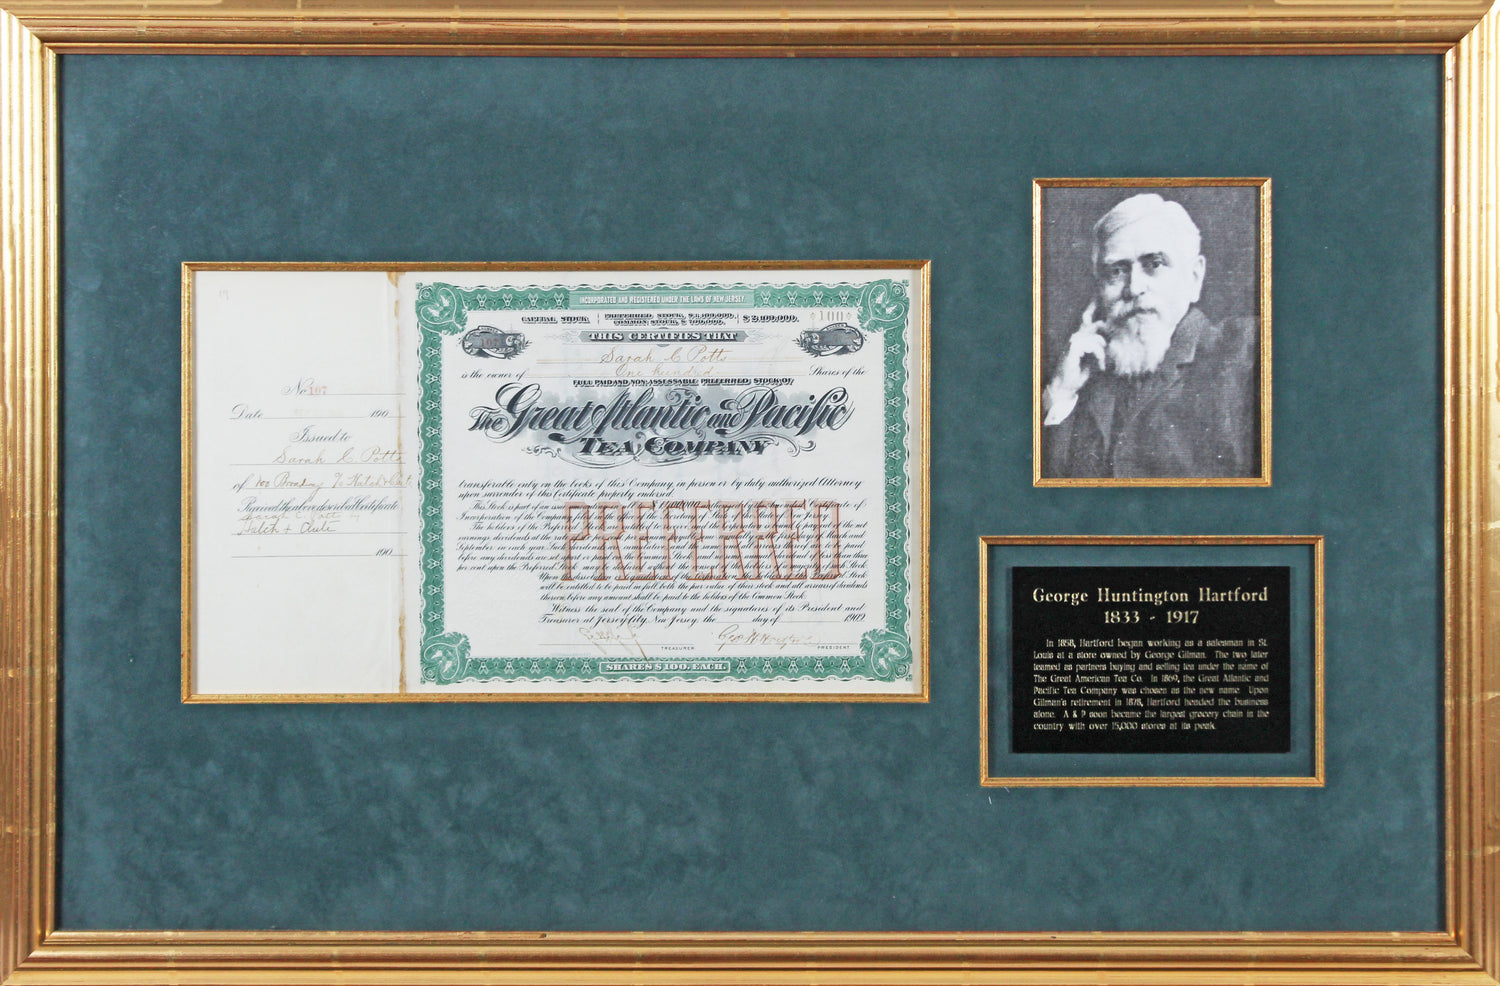 No 107
Date 190
Issued to
Sarah C Potts
of 100 Broadway
Received the above described Certificate
Hatch + Clute
190
INCORPORATED AND REGISTERED UNDER THE LAWS OF NEW JERSEY.
CAPITAL STOCK PREFERRED STOCK, $1,400,000. COMMON STOCK, $ 700,000. $ 2,100,000. 100
THIS CERTIFIES THAT
107
Sarah C Potts
is the owner of One hundred Shares of the
FULL PAID AND NON-ASSESSABLE PREFERRED STOCK OF
The Great Atlantic and Pacific
TEA COMPANY
transferable only on the books of this Company, in person or by duly authorized Attorney
upon surrender of this Certificate properly endorsed.
This Stock is part of an issue Certificate of
Incorporation of the Company
The holders of the Preferred Stock the net
earnings
September in each year. Such dividends are cumulative paid
before any dividends are set apart or paid on the Common Stock
per cent upon the Preferred Stock
Upon a dissolution Preferred Stock
will be entitled to be paid in full, both the par value of their stock and all arrears of dividends
thereon, before any amount shall be paid to the holders of the Common Stock.
PREFERRED
Witness the seal of the Company and the signatures of its President and
Treasurer at Jersey City, New Jersey, the day of 1909.
Geo H Hartford
TREASURER PRESIDENT
SHARES $ 100. EACH.
George Huntington Hartford
1833 - 1917
In 1858, Hartford began working as a salesman in St.
Louis at a store owned by George Gilman. The two later
teamed as partners buying and selling tea under the name of
The Great American Tea Co. In 1869, the Great Atlantic and
Pacific Tea Company was chosen as the new name. Upon
Gilman's retirement in 1878, Hartford headed the business
alone. A & P soon became the largest grocery chain in the
country with over 15,000 stores at its peak.